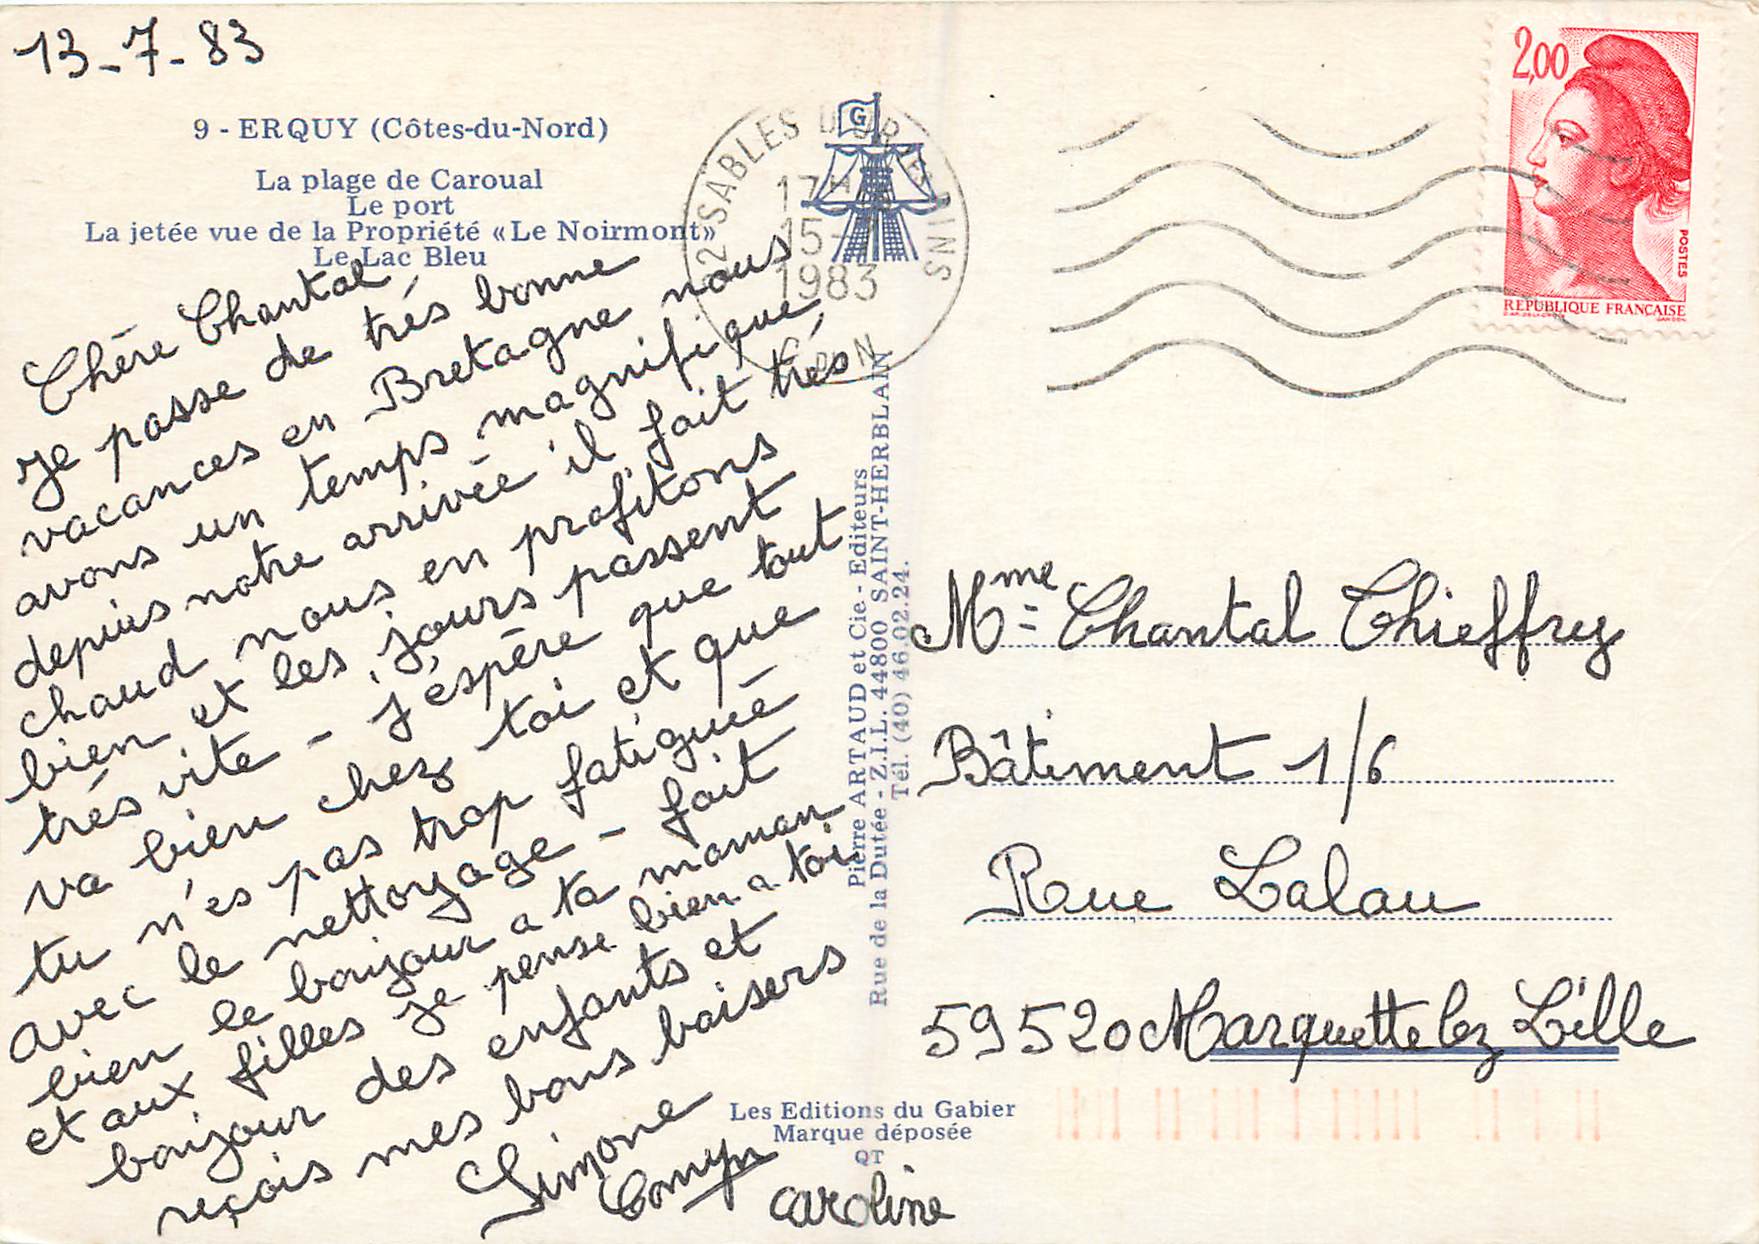 13-7-83
9 - ERQUY (Côtes-du-Nord)
La plage de Caroual
Le port
La jetée vue de la Propriété «Le Noirmont»
Le Lac Bleu
Chère Chantal
je passe de trés bonne
vacances en Bretagne nous
avons un temps magnifique
depuis notre arrivée il fait trés
chaud nous en profitons
bien et les jours passent
trés vite - j'éspère que tout
va bien chez toi et que
tu n'es pas trop fatiguée
avec le nettoyage - fait
bien le bonjour a ta maman
et aux filles je pense bien a toi
bonjour des enfants et
reçois mes bons baisers
Simone
Comyn
Caroline
SABLES D'OR LES PINS
17H
15-
1983
Pierre ARTAUD et Cie - Editeurs
Rue de la Dutée - Z.I.L. 44800 SAINT-HERBLAIN
Tél. (40) 46.02.24.
Les Editions du Gabier
Marque déposée
QT
G
2,00
POSTES
REPUBLIQUE FRANÇAISE
Mme Chantal Thieffry
Bâtiment 1/6
Rue Lalau
59520 Marquette lez Lille